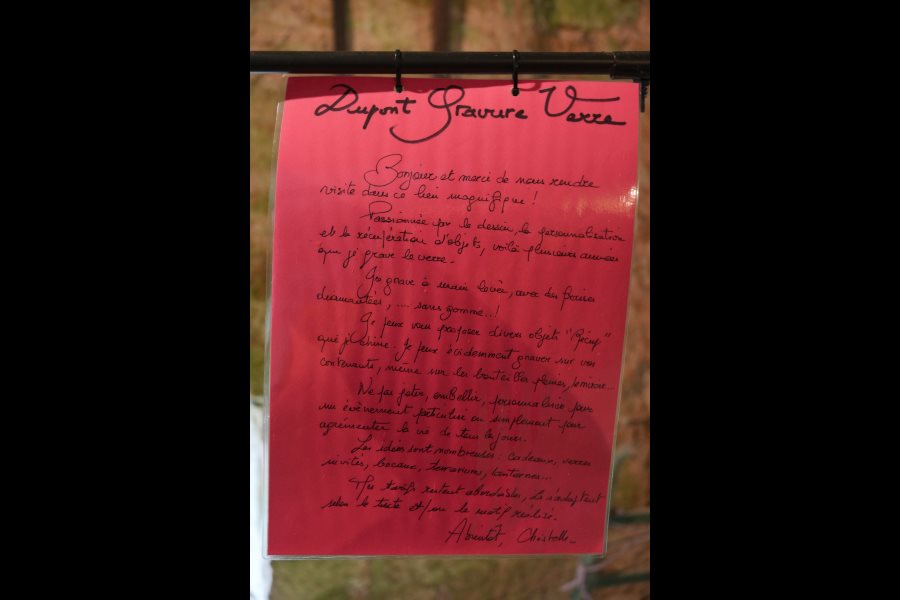 Dupont Gravure Verre
Bonjour et merci de nous rendre
visite dans ce lieu magnifique !
Passionnée par le dessin, la personnalisation
et la récupération d'objets, voilà plusieurs années
que je grave le verre.
Je grave à main levée, avec des fraises
diamantées, ... sans gomme..!
Je peux vous proposer divers objets "Récup"
que je chine. Je peux évidemment graver sur vos
contenants, même sur les bouteilles pleines, miroirs...
Ne pas jeter, embellir, personnaliser pour
un évènement particulier ou simplement pour
agrémenter la vie de tous les jours.
Les idées sont nombreuses : cadeaux, verres
invités, bocaux, terrariums, lanternes...
Mes tarifs restent abordables, ils s'adaptent
selon le texte et/ou le motif réalisé.
A bientôt, Christelle